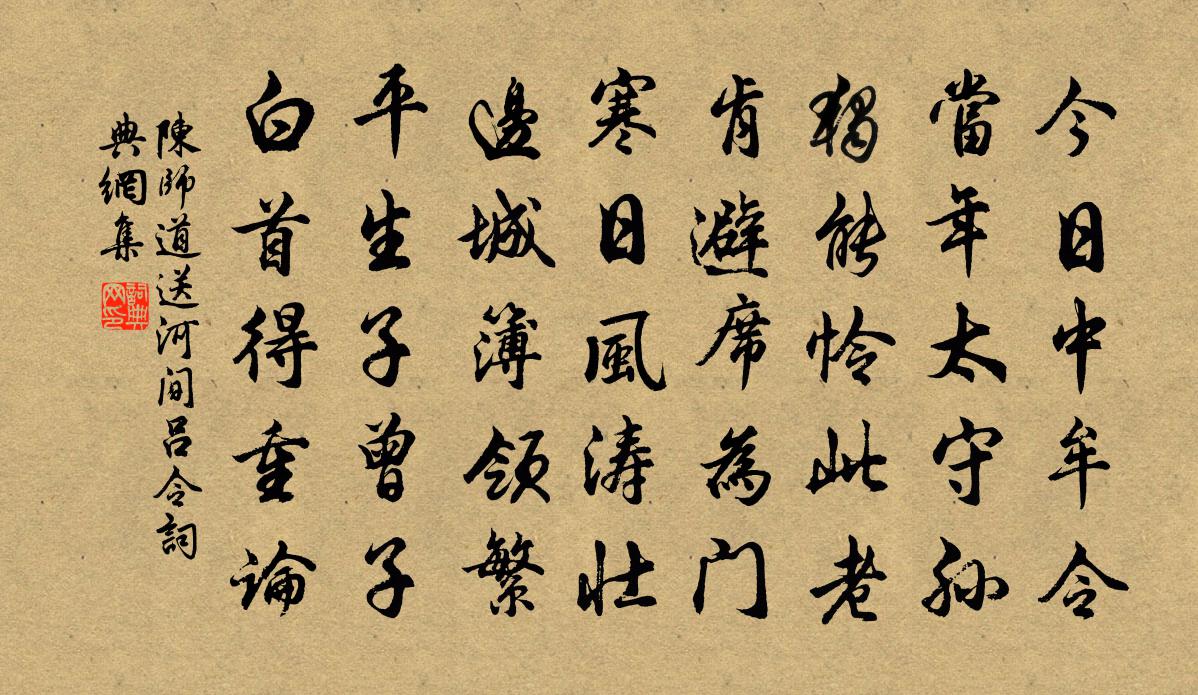 今日中牟令
當年太守孫
獨能憐此老
肯避席為门
寒日風濤壯
邊城簿領繁
平生子曾子
白首得重論
陳師道送河间吕令詞
典網集
詞典网印